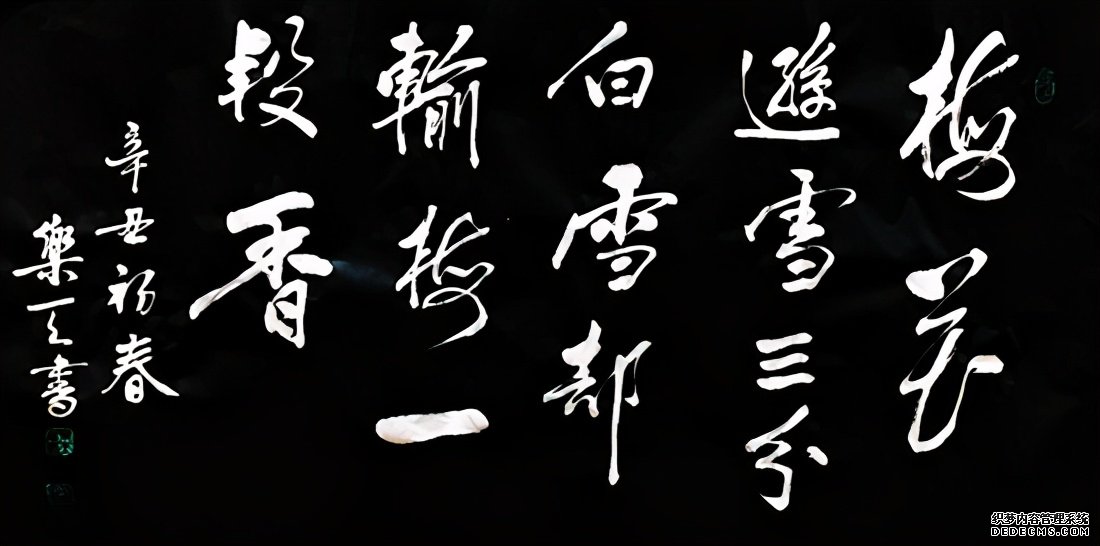 梅花
遜雪三分
白雪却
輸梅一
段香
辛丑初春
樂天書
织梦内容管理系统
DEDECMS.COM